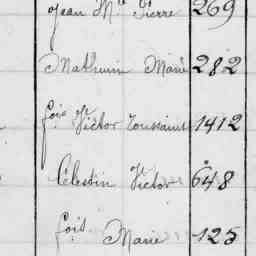 Jean Mie Pierre 269
Mathurin Marie 282
fois Victor Toussaint 1412
Célestin Victor 648
fois Marie 125